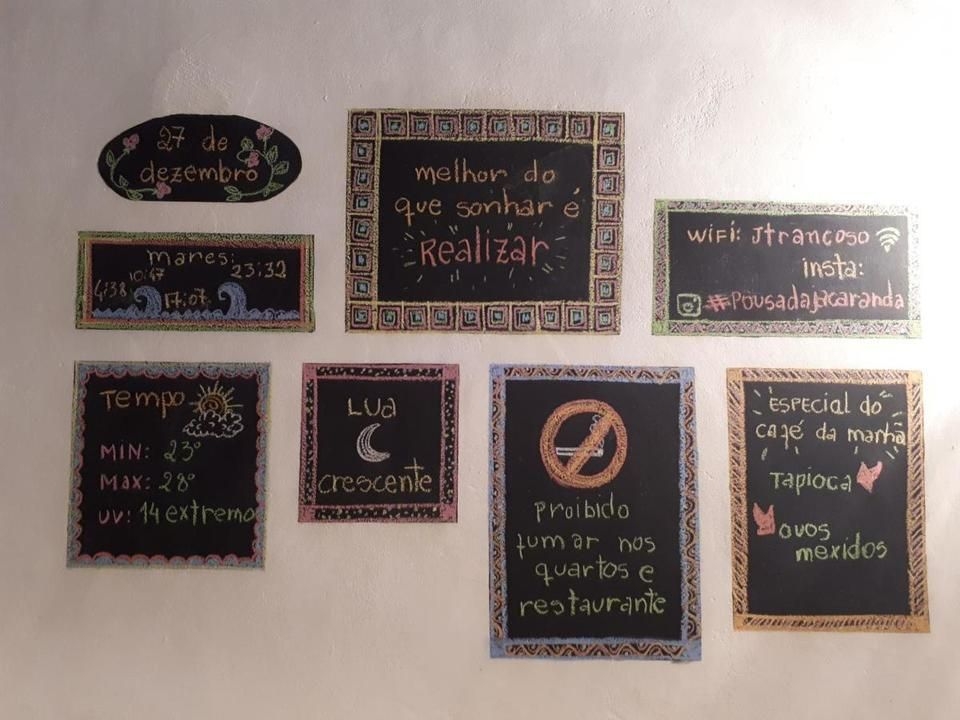 27 de
dezembro
melhor do
que sonhar é
Realizar
mares:
4:38 10:47 17:07 23:32
WiFi: Jtrancoso
insta:
#PousadaJacaranda
Tempo
MIN: 23°
Max: 28°
UV: 14 extremo
LUA
crescente
Proibido
fumar nos
quartos e
restaurante
ESPECIAL do
café da manhã
Tapioca
ovos
mexidos